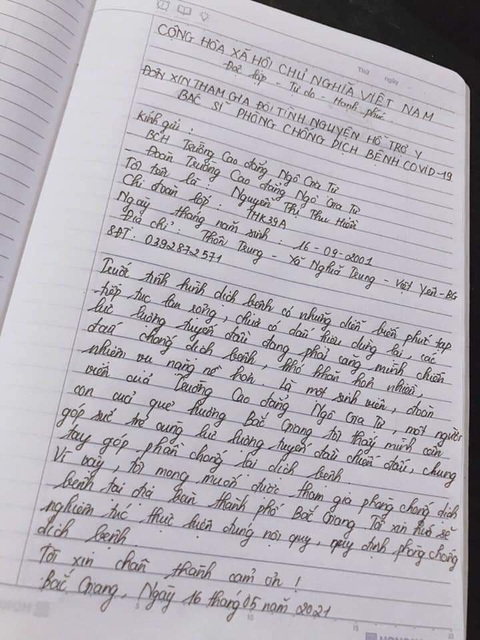 Thứ ngày
CỘNG HÒA XÃ HỘI CHỦ NGHĨA VIỆT NAM
Độc lập - Tự do - Hạnh phúc
ĐƠN XIN THAM GIA ĐỘI TÌNH NGUYỆN HỖ TRỢ Y
BÁC SĨ PHÒNG CHỐNG DỊCH BỆNH COVID-19
Kính gửi :
- BCH Trường Cao đẳng Ngô Gia Tự
- Đoàn Trường Cao đẳng Ngô Gia Tự
Tôi tên là : Nguyễn Thị Thu Hiền
Chi đoàn lớp : THK39A
Ngày tháng năm sinh : 16-09-2001
Địa chỉ : Thôn Trung - Xã Nghĩa Trung - Việt Yên - BG
SĐT: 0392872571
Trước tình hình dịch bệnh có những diễn biến phức tạp
tiếp tục lan rộng, chưa có dấu hiệu dừng lại, các
lực lượng tuyến đầu đang phải căng mình chiến
đấu chống dịch bệnh, khó khăn hơn nhiều,
nhiệm vụ nặng nề hơn. Là một sinh viên, đoàn
viên của Trường Cao đẳng Ngô Gia Tự, một người
con của quê hương Bắc Giang tôi thấy mình cần
góp sức trẻ cùng lực lượng tuyến đầu chiến đấu, chung
tay góp phần chống lại dịch bệnh.
Vì vậy, tôi mong muốn được tham gia phòng chống dịch
bệnh tại địa bàn thành phố Bắc Giang. Tôi xin hứa sẽ
nghiêm túc thực hiện đúng nội quy, quy định phòng chống
dịch bệnh
Tôi xin chân thành cảm ơn !
Bắc Giang, Ngày 16 tháng 05 năm 2021